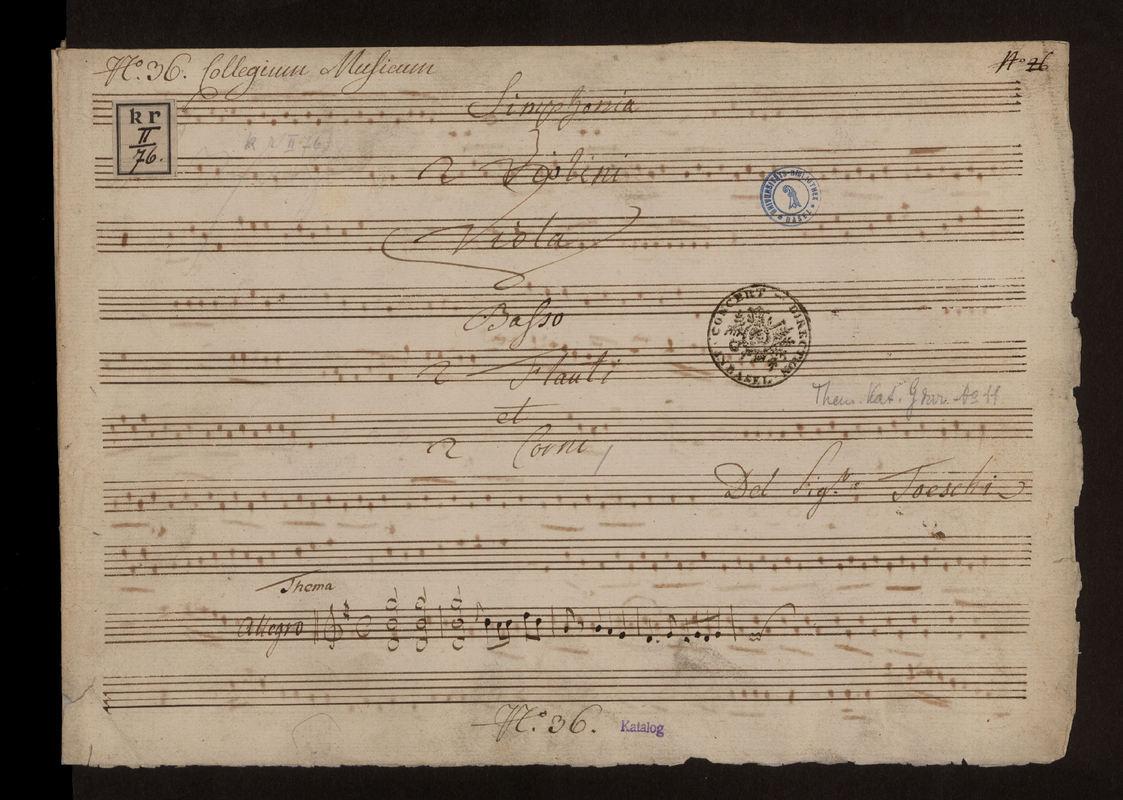 No: 36. Collegium Musicum
No 26
Simphonia
kr
II
76.
kr II 76
2 Violini
UNIVERSITÄTS-BIBLIOTHEK BASEL
Viola
Basso
CONCERT DIRECTION IN BASEL
2 Flauti
Them. Kat.
et
2 Corni
Del Sigre: Toeschi
Thema
Allegro
No: 36.
Katalog